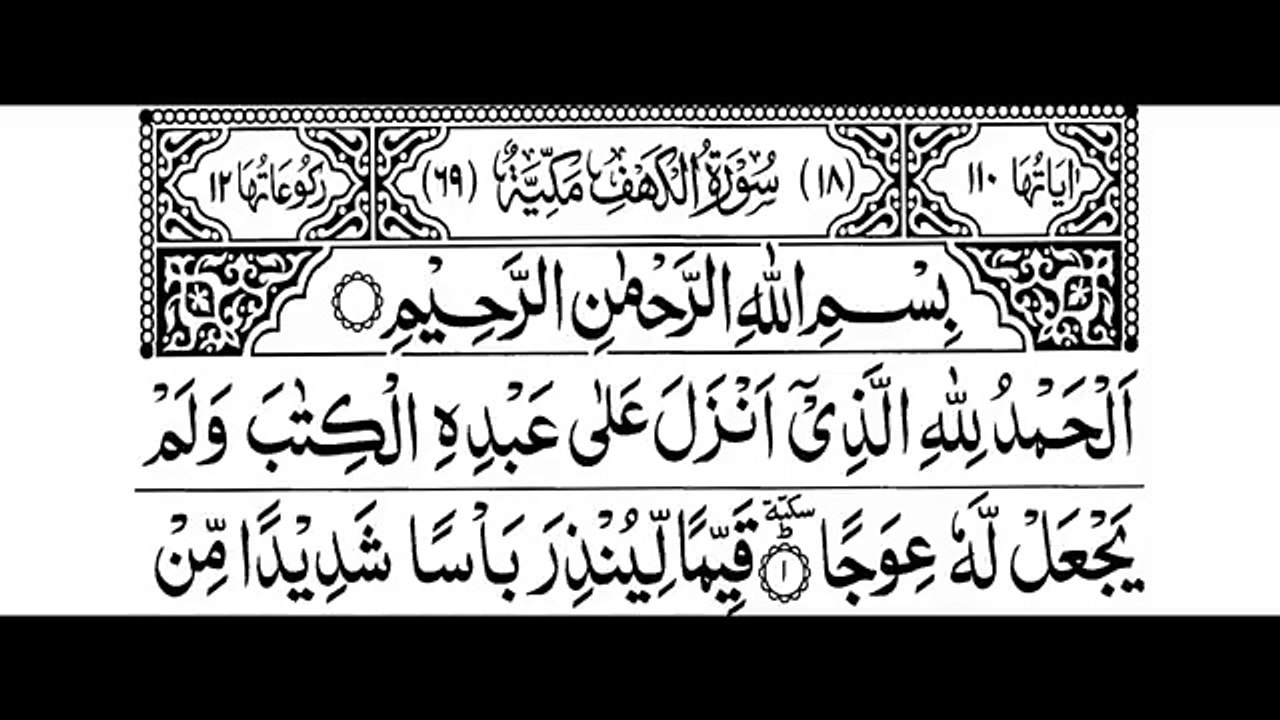 اٰیَاتُهَا ١١٠ (١٨) سُوْرَةُ الْكَهْفِ مَكِّیَّةٌ (٦٩) رَكُوْعَاتُهَا ١٢
بِسْمِ اللّٰهِ الرَّحْمٰنِ الرَّحِیْمِ
اَلْحَمْدُ لِلّٰهِ الَّذِیْۤ اَنْزَلَ عَلٰی عَبْدِهِ الْكِتٰبَ وَلَمْ
یَجْعَلْ لَّهٗ عِوَجًا ؕ سكتة ١ قَیِّمًا لِّیُنْذِرَ بَاْسًا شَدِیْدًا مِّنْ